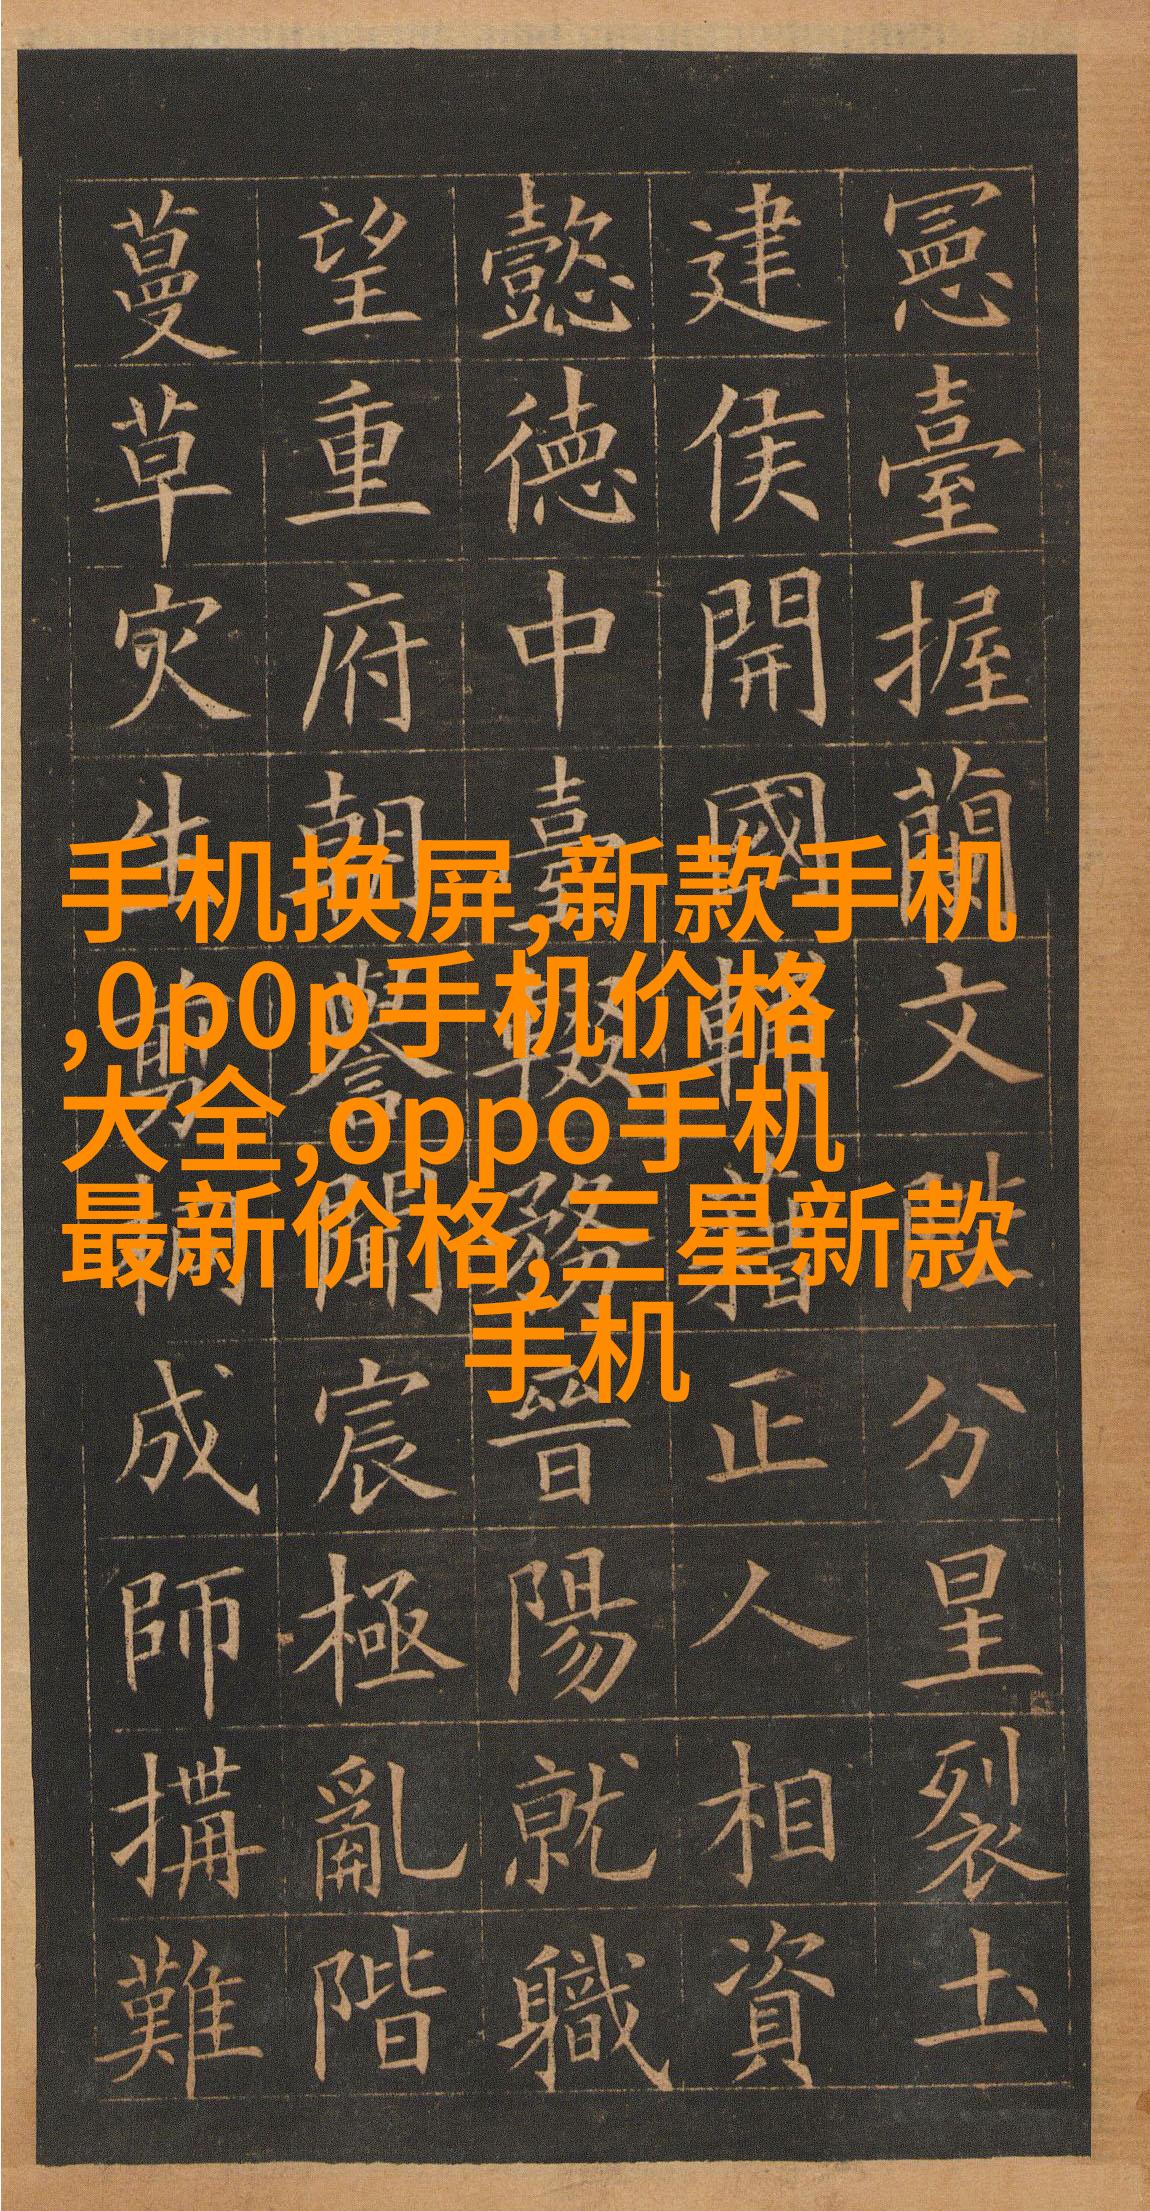 手机换屏,新款手机
,0p0p手机价格
大全,oppo手机
最新价格,三星新款
手机
憲臺握蘭文陛分星裂土
建侯開國輔藉正人相資
懿德中臺輟務晉陽就職
望重府朝譽聞宸極亂階
蔓草灾生剪桐成師搆難